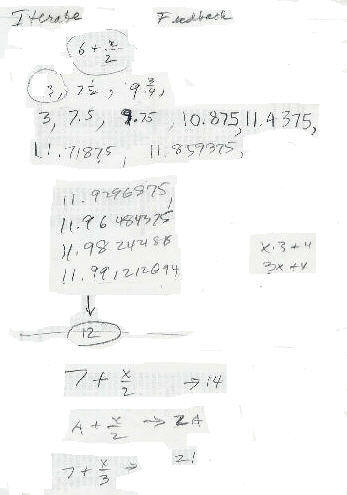 Iterate Feedback
6 + x/2
3, 7 1/2, 9 3/4,
3, 7.5, 9.75, 10.875, 11.4375,
11.71875, 11.859375,
11.9296875,
11.96484375
11.9824
11.991212
12
x·3+4
3x+4
7 + x/2 → 14
A + x/2 → 2A
7 + x/3 →